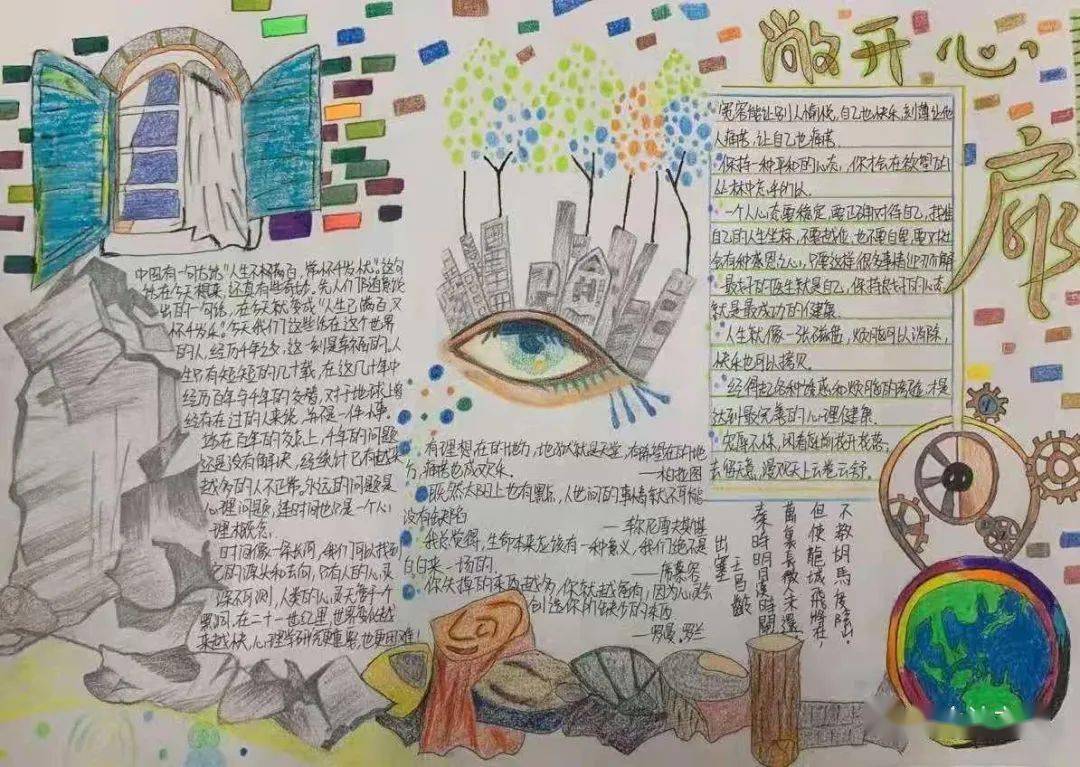 敞开心
廊
宽容能让别人愉悦,自己也快乐,刻薄让他
人痛苦,让自己也痛苦.
保持一种平和的心态,你才会在欲望的
丛林中怎
一个人心态要稳定,要正确对待自己,找准
自己的人生坐标,不要越位,也不要自卑,要对社
会有种感恩之心,只要这样很多事情迎刃而解
最好的医生就是自己,保持良好的心态
就是最成功的健康.
人生就像一张磁盘,烦恼可以消除,
快乐也可以拷贝.
经得起各种诱惑和烦恼的考验,才是
达到最完善的心理健康.
宠辱不惊,闲看庭前花开花落;
去留无意,漫观天上云卷云舒.
中国有一句古话"人生不满百,常怀千岁忧"这句
话在今天想来,还真有些奇妙.先人们
出的一句话,在今天就变成"人生已满百,又
怀千岁忧"今天我们这些活在这个世界
的人,经历千年之交,这一刻是幸福的.人
生只有短短的几十载,在这几十年中
经历百年与千年的交替,对于地球上曾
经存在过的人来说,并不是一件小事.
站在百年的交点上,千年的问题
还是没有解决,经统计已有越来
越多的人不正常.永远的问题是
心理问题,连时间也只是一个心
理概念.
时间像一条长河,我们可以找到
它的源头和去向,只有人的心灵
深不可测,人类的心灵等于个
黑洞,在二十一世纪里,世界变化越
来越快,心理学研究更重要,也更困难!
有理想在的地方,地狱就是天堂,有希望在的地
方,痛苦也成欢乐.
——柏拉图
既然太阳上也有黑点,人世间的事情就不可能
没有缺陷
——车尔尼雪夫斯基
我总觉得,生命本来应该有一种意义,我们绝不是
白白来一场的.
——席慕容
你失掉的东西越多,你就越富有,因为心灵会
创造你所缺少的东西
——罗曼.罗兰
出塞
王昌齡
秦時明月漢時關
萬里長徵人未還
但使龍城飛將在,
不教胡馬度陰山.